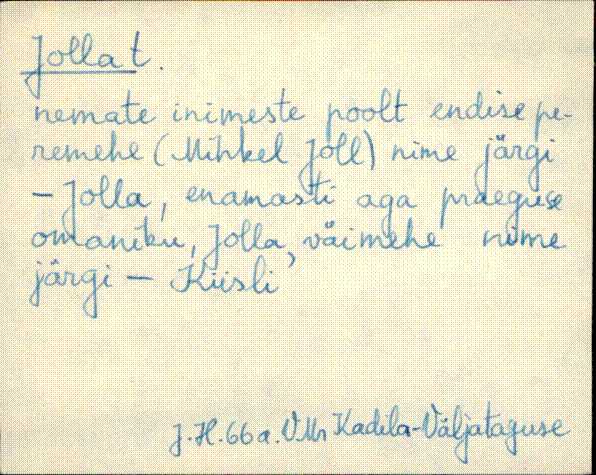 Jolla t.
nemate inimeste poolt endise pe-
remehe (Mihkel Joll) nime järgi
– Jolla, enamasti aga praeguse
omaniku, Jolla, väimehe nime
järgi – Kiisli
J. H. 66 a. VMr Kadila-Väljataguse